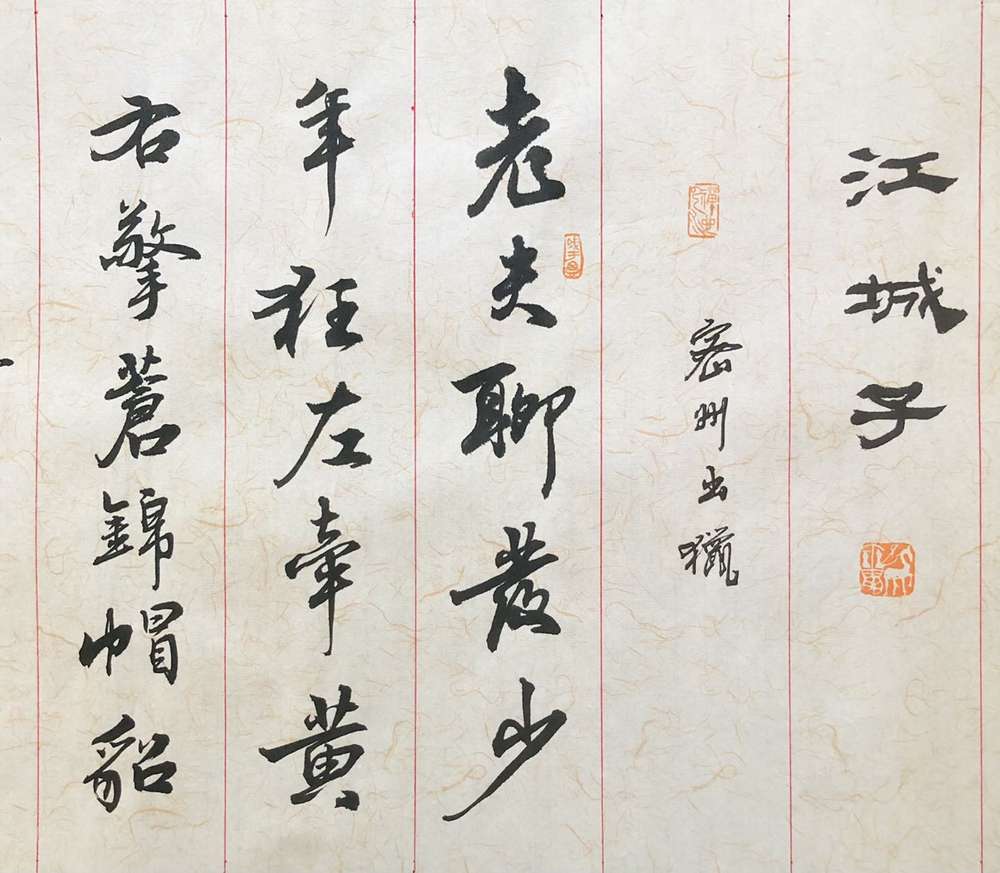 江城子
密州出獵
老夫聊發少
年狂左牽黃
右擎蒼錦帽貂